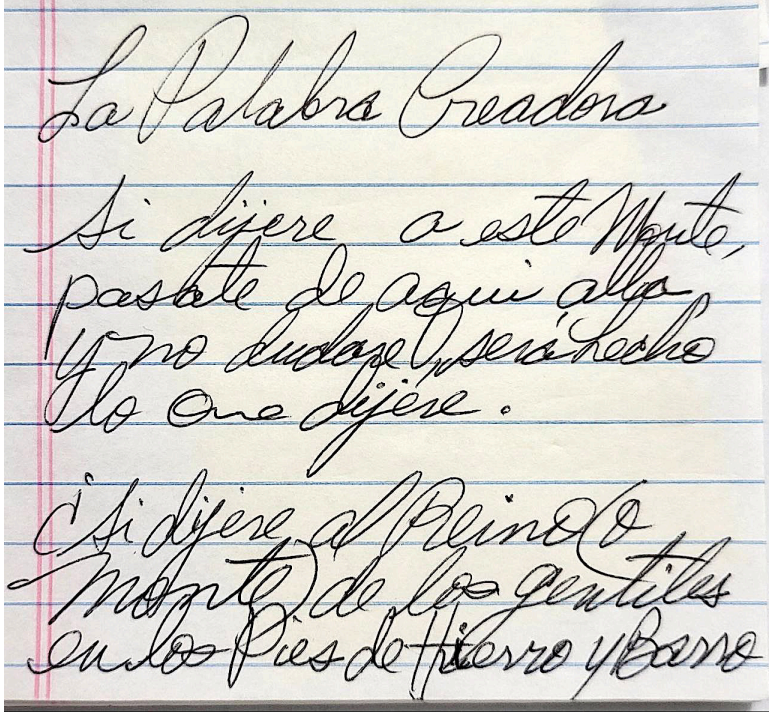 La Palabra Creadora
Si dijere a este Monte,
pasate de aqui alla
y no dudare, será hecho
lo que dijere.
¡Si dijere al Reino (o
Monte) de los gentiles
en los Pies de Hierro y Barro